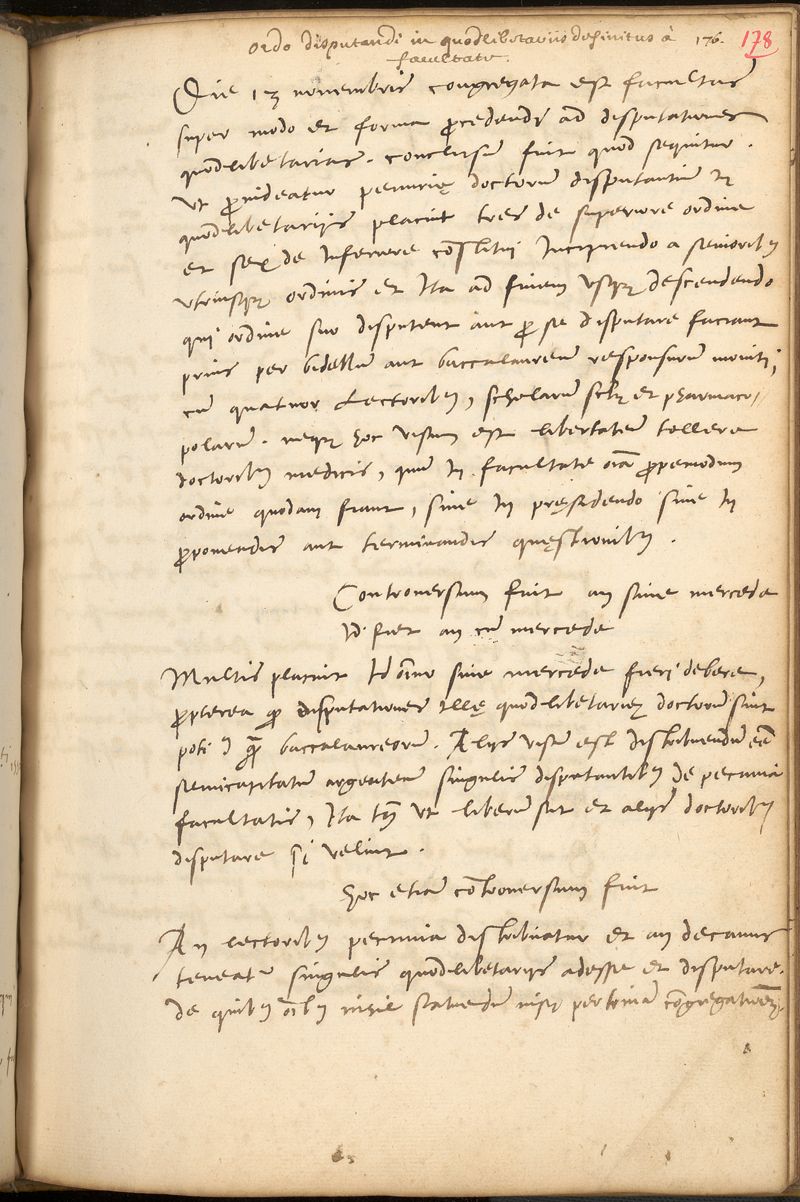 ordo disputandi in quodlibetariis definitus à 176. 178
facultate.
Die 13 novembris congregata est facultas
super modo et forma procedendi ad disputationes
quodlibetarias. conclusũ fuit quod sequitur.
Ut provideatur penurię doctorum disputantiũ In
quodlibetarijs placuit tres de superiore ordine
et sex de Inferiore cõstitui Incipiendo a senioribus
utriusque ordinis et Ita ad finem usque descendendo
qui ordine suo disputent aut pro se disputare faciant
prius per bidellũ aut baccalaureũ responsurum moniti,
cũ quatuor Lectoribus, scholarũ scilicet et pharmaco-
polarũ. neque hoc visum est libertatem tollere
doctoribus medicis, quum In facultate oĩa propemodum
ordine quodam fiant, sive In pręsidendo sive In
proponendis aut terminandis quęstionibus.
Controversum fuit an sine mercede
Id fiet an cũ mercede
Multis placuit Id oĩno sine mercede fieri debere,
propterea quod disputationes Illę quodlibetarię doctorum sint
potius quam baccalaureorum. Alijs visũ est distribuendũ eẽ
semicapitatum argenteum singulis disputantibus de pecunia
facultatis, Ita tamen ut liberũ sit et alijs doctoribus
disputare si velint.
hoc etiã cõtroversum fuit
An lectoribus pecunia distribuatur et an decanus
teneatur singulis quodlibetarijs adesse et disputare.
de quibus oĩbus nihil statuendũ nisi per congregationem.